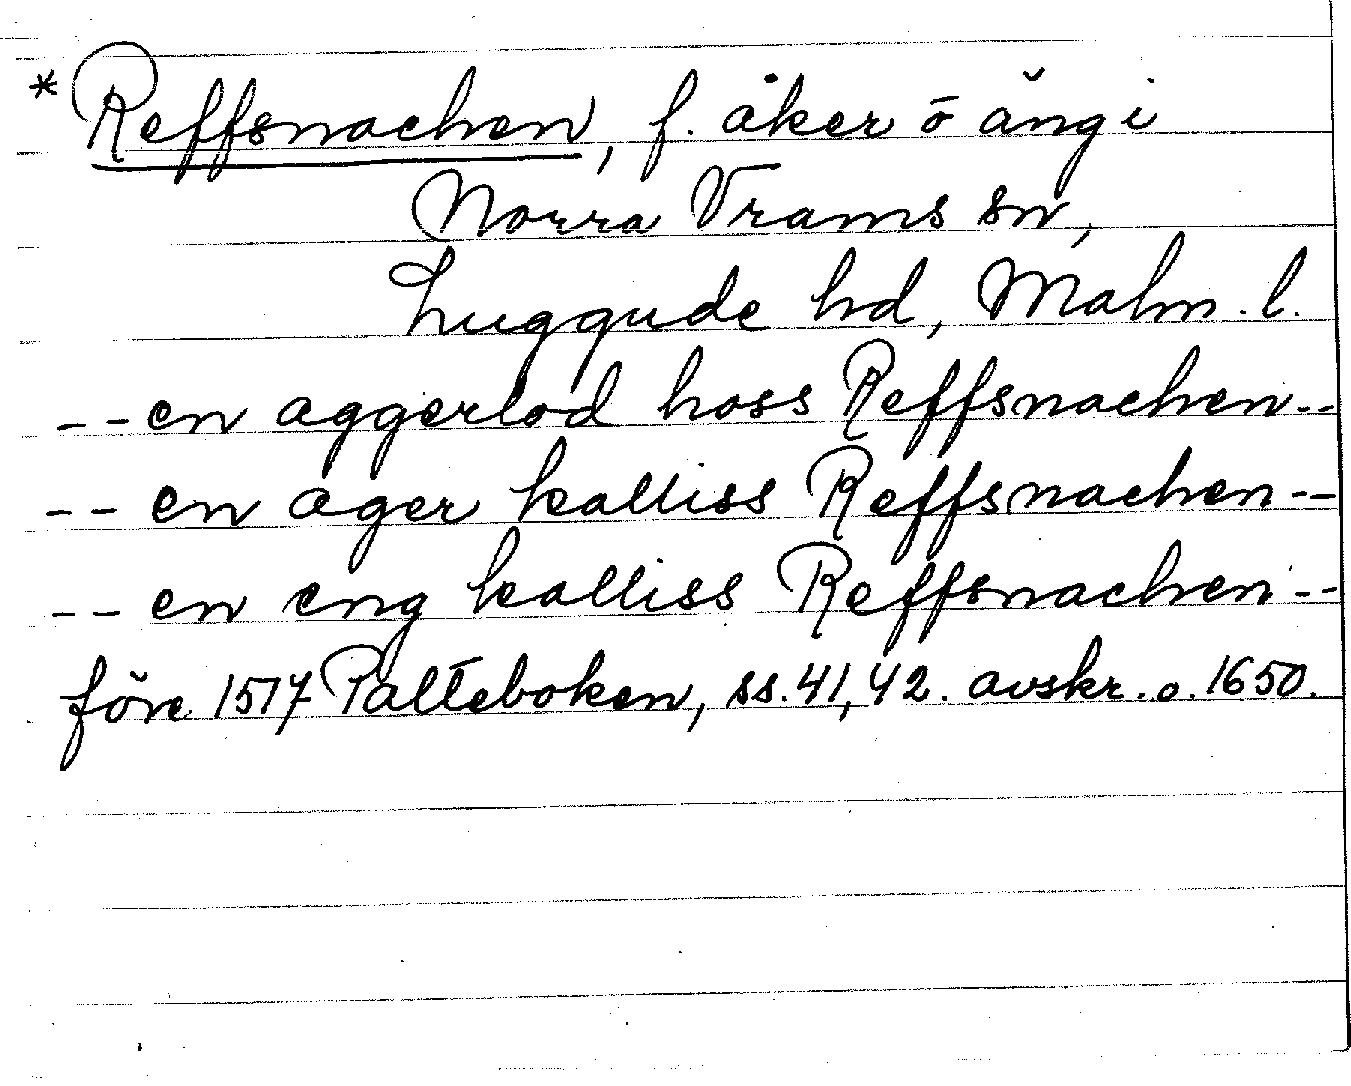 * Reffsnachen, f. åker o äng i
Norra Vrams sn,
Luggude hd, Malm. l.
-- en aggerlod hoss Reffsnachen --
-- en ager kalliss Reffsnachen --
-- en eng kalliss Reffsnachen --
före 1517 Palteboken, ss. 41, 42. avskr. o. 1650.